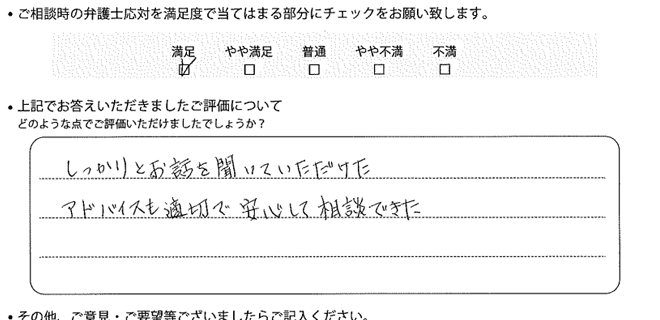 • ご相談時の弁護士応対を満足度で当てはまる部分にチェックをお願い致します。
満足 やや満足 普通 やや不満 不満
☑ □ □ □ □
• 上記でお答えいただきましたご評価について
どのような点でご評価いただけましたでしょうか？
しっかりとお話を聞いていただけた
アドバイスも適切で安心して相談できた
• その他、ご意見・ご要望等ございましたらご記入ください。